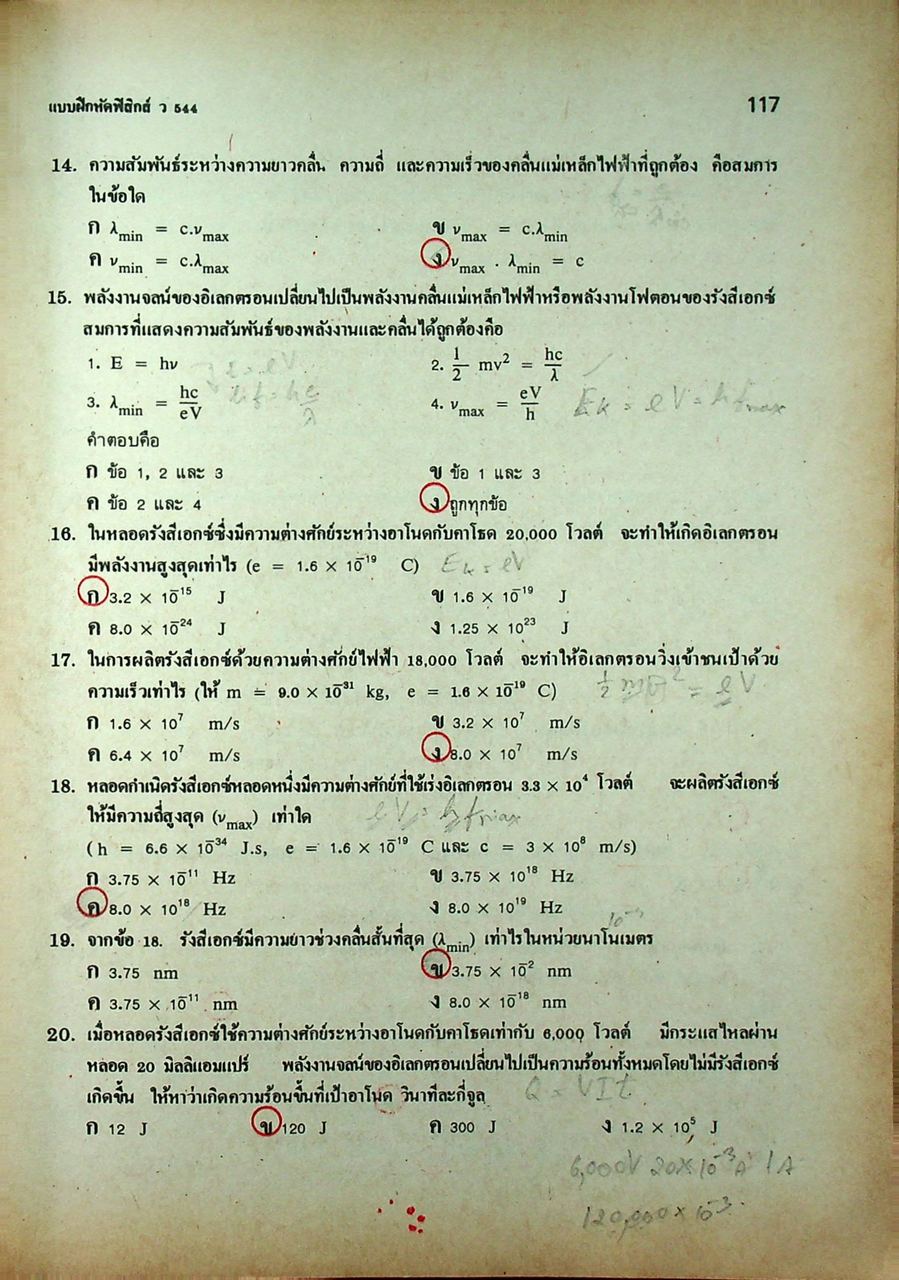 แบบฝึกหัดฟิสิกส์ ว 544
117
14. ความสัมพันธ์ระหว่างความยาวคลื่น ความถี่ และความเร็วของคลื่นแม่เหล็กไฟฟ้าที่ถูกต้อง คือสมการ
ในข้อใด
ก λmin = c.νmax ข νmax = c.λmin
ค νmin = c.λmax ง νmax . λmin = c
15. พลังงานจลน์ของอิเลกตรอนเปลี่ยนไปเป็นพลังงานคลื่นแม่เหล็กไฟฟ้าหรือพลังงานโฟตอนของรังสีเอกซ์
สมการที่แสดงความสัมพันธ์ของพลังงานและคลื่นได้ถูกต้องคือ
1. E = hν 2. 1/2 mv² = hc/λ
3. λmin = hc/eV 4. νmax = eV/h Ek = eV = hfmax
คำตอบคือ
ก ข้อ 1, 2 และ 3 ข ข้อ 1 และ 3
ค ข้อ 2 และ 4 ง ถูกทุกข้อ
16. ในหลอดรังสีเอกซ์ซึ่งมีความต่างศักย์ระหว่างอาโนดกับคาโธด 20,000 โวลต์ จะทำให้เกิดอิเลกตรอน
มีพลังงานสูงสุดเท่าไร (e = 1.6 × 10⁻¹⁹ C) Ek = eV
ก 3.2 × 10⁻¹⁵ J ข 1.6 × 10⁻¹⁹ J
ค 8.0 × 10⁻²⁴ J ง 1.25 × 10²³ J
17. ในการผลิตรังสีเอกซ์ด้วยความต่างศักย์ไฟฟ้า 18,000 โวลต์ จะทำให้อิเลกตรอนวิ่งเข้าชนเป้าด้วย
ความเร็วเท่าไร (ให้ m = 9.0 × 10⁻³¹ kg, e = 1.6 × 10⁻¹⁹ C) = eV
ก 1.6 × 10⁷ m/s ข 3.2 × 10⁷ m/s
ค 6.4 × 10⁷ m/s ง 8.0 × 10⁷ m/s
18. หลอดกำเนิดรังสีเอกซ์หลอดหนึ่งมีความต่างศักย์ที่ใช้เร่งอิเลกตรอน 3.3 × 10⁴ โวลต์ จะผลิตรังสีเอกซ์
ให้มีความถี่สูงสุด (νmax) เท่าใด eV = hfmax
(h = 6.6 × 10⁻³⁴ J.s, e = 1.6 × 10⁻¹⁹ C และ c = 3 × 10⁸ m/s)
ก 3.75 × 10⁻¹¹ Hz ข 3.75 × 10¹⁸ Hz
ค 8.0 × 10¹⁸ Hz ง 8.0 × 10¹⁹ Hz
19. จากข้อ 18. รังสีเอกซ์มีความยาวช่วงคลื่นสั้นที่สุด (λmin) เท่าไรในหน่วยนาโนเมตร
ก 3.75 nm ข 3.75 × 10⁻² nm
ค 3.75 × 10⁻¹¹ nm ง 8.0 × 10⁻¹⁸ nm
20. เมื่อหลอดรังสีเอกซ์ใช้ความต่างศักย์ระหว่างอาโนดกับคาโธดเท่ากับ 6,000 โวลต์ มีกระแสไหลผ่าน
หลอด 20 มิลลิแอมแปร์ พลังงานจลน์ของอิเลกตรอนเปลี่ยนไปเป็นความร้อนทั้งหมดโดยไม่มีรังสีเอกซ์
เกิดขึ้น ให้หาว่าเกิดความร้อนขึ้นที่เป้าอาโนด วินาทีละกี่จูล Q = VIt
ก 12 J ข 120 J ค 300 J ง 1.2 × 10⁵ J
6,000V 20×10⁻³A
120,000 × 10⁻³